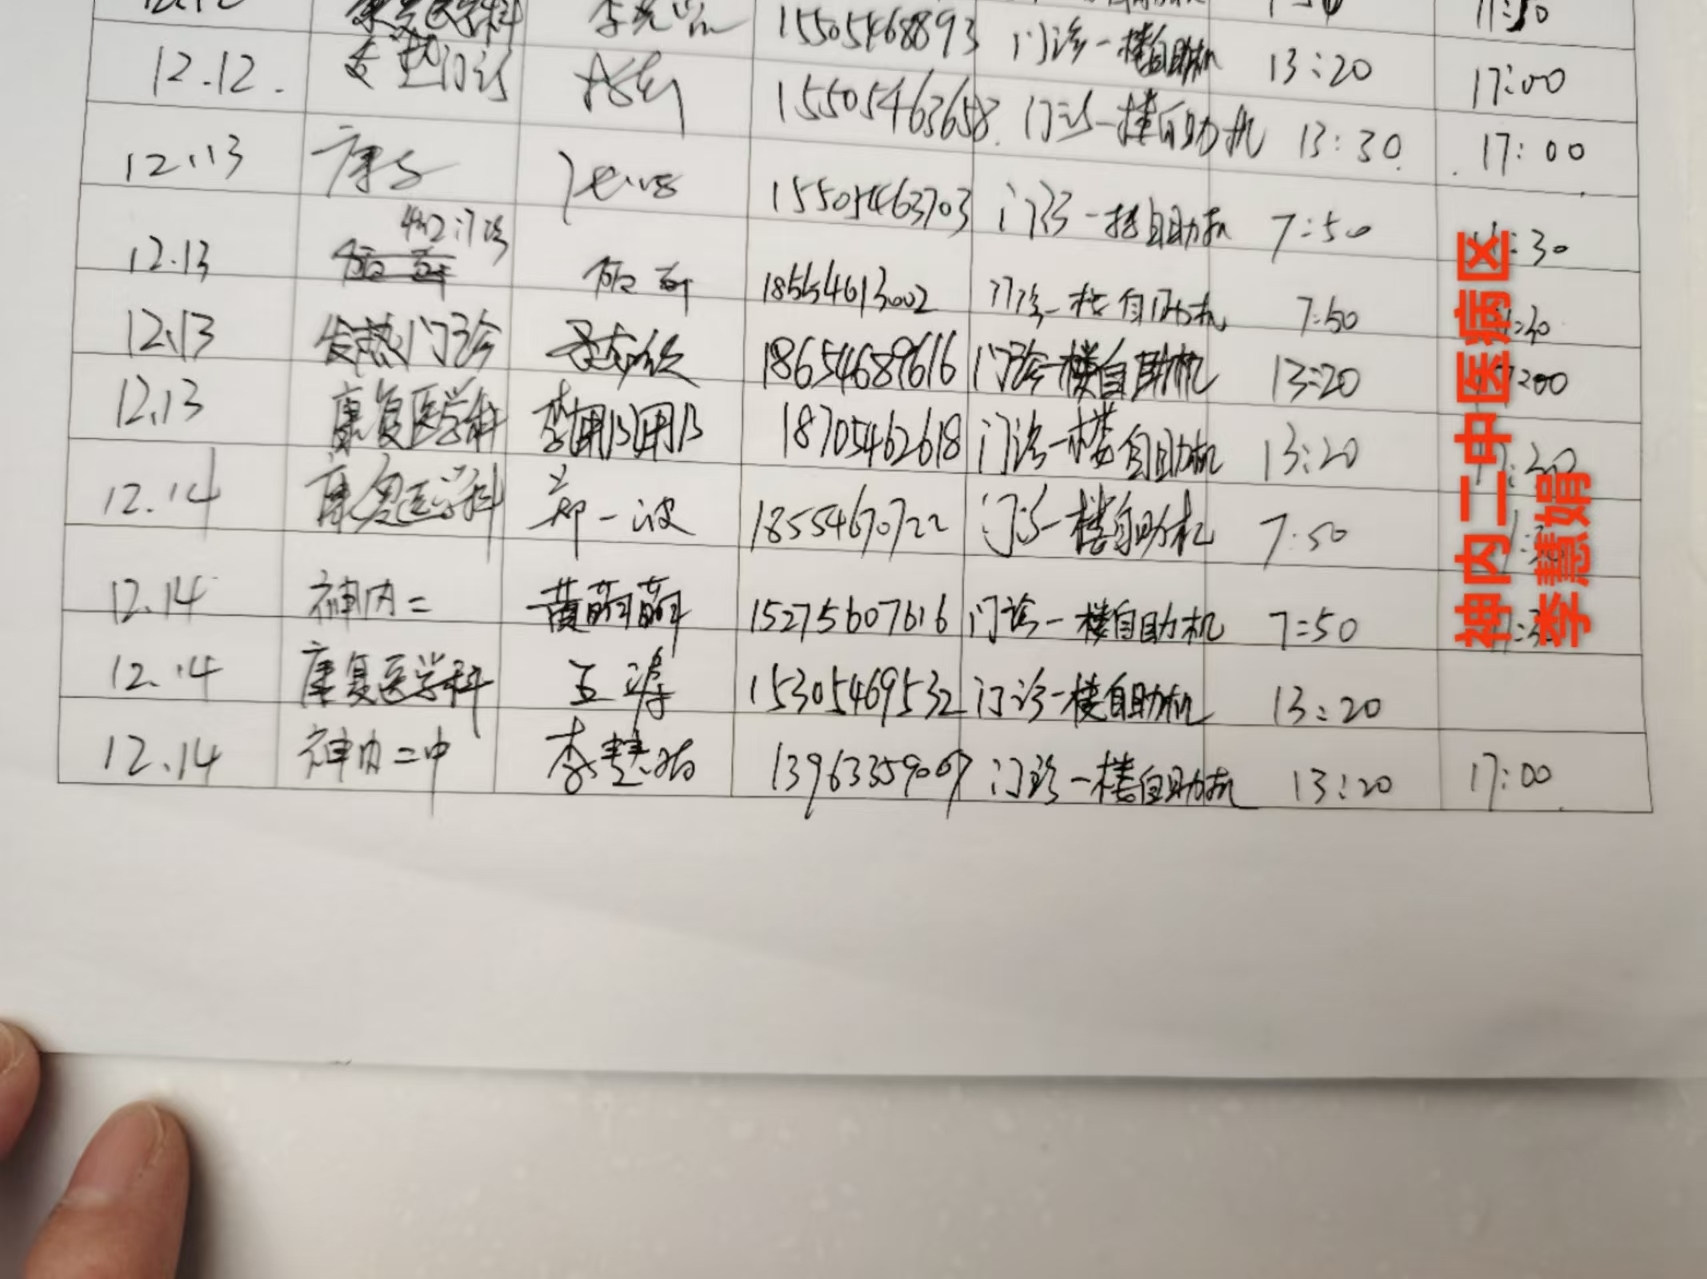 康复医学科 15505468893 门诊一楼自助机 13:20 17:00
12.12. 发热门诊 15505463658 门诊一楼自助机 13:30 17:00
12.13 康复 15505463703 门诊一楼自助机 7:50 :30
12.13 门诊 18554613002 门诊一楼自助机 7:50
12.13 发热门诊 18654689616 门诊一楼自助机 13:20 17:00
12.13 康复医学科 李明明 18705462618 门诊一楼自助机 13:20
12.14 康复医学科 郑一波 18554670722 门诊一楼自助机 7:50
12.14 神内二 黄萌萌 15275607616 门诊一楼自助机 7:50
12.14 康复医学科 王 15305469532 门诊一楼自助机 13:20
12.14 神内二中 李慧娟 13963359007 门诊一楼自助机 13:20 17:00
神内二中医病区
李慧娟